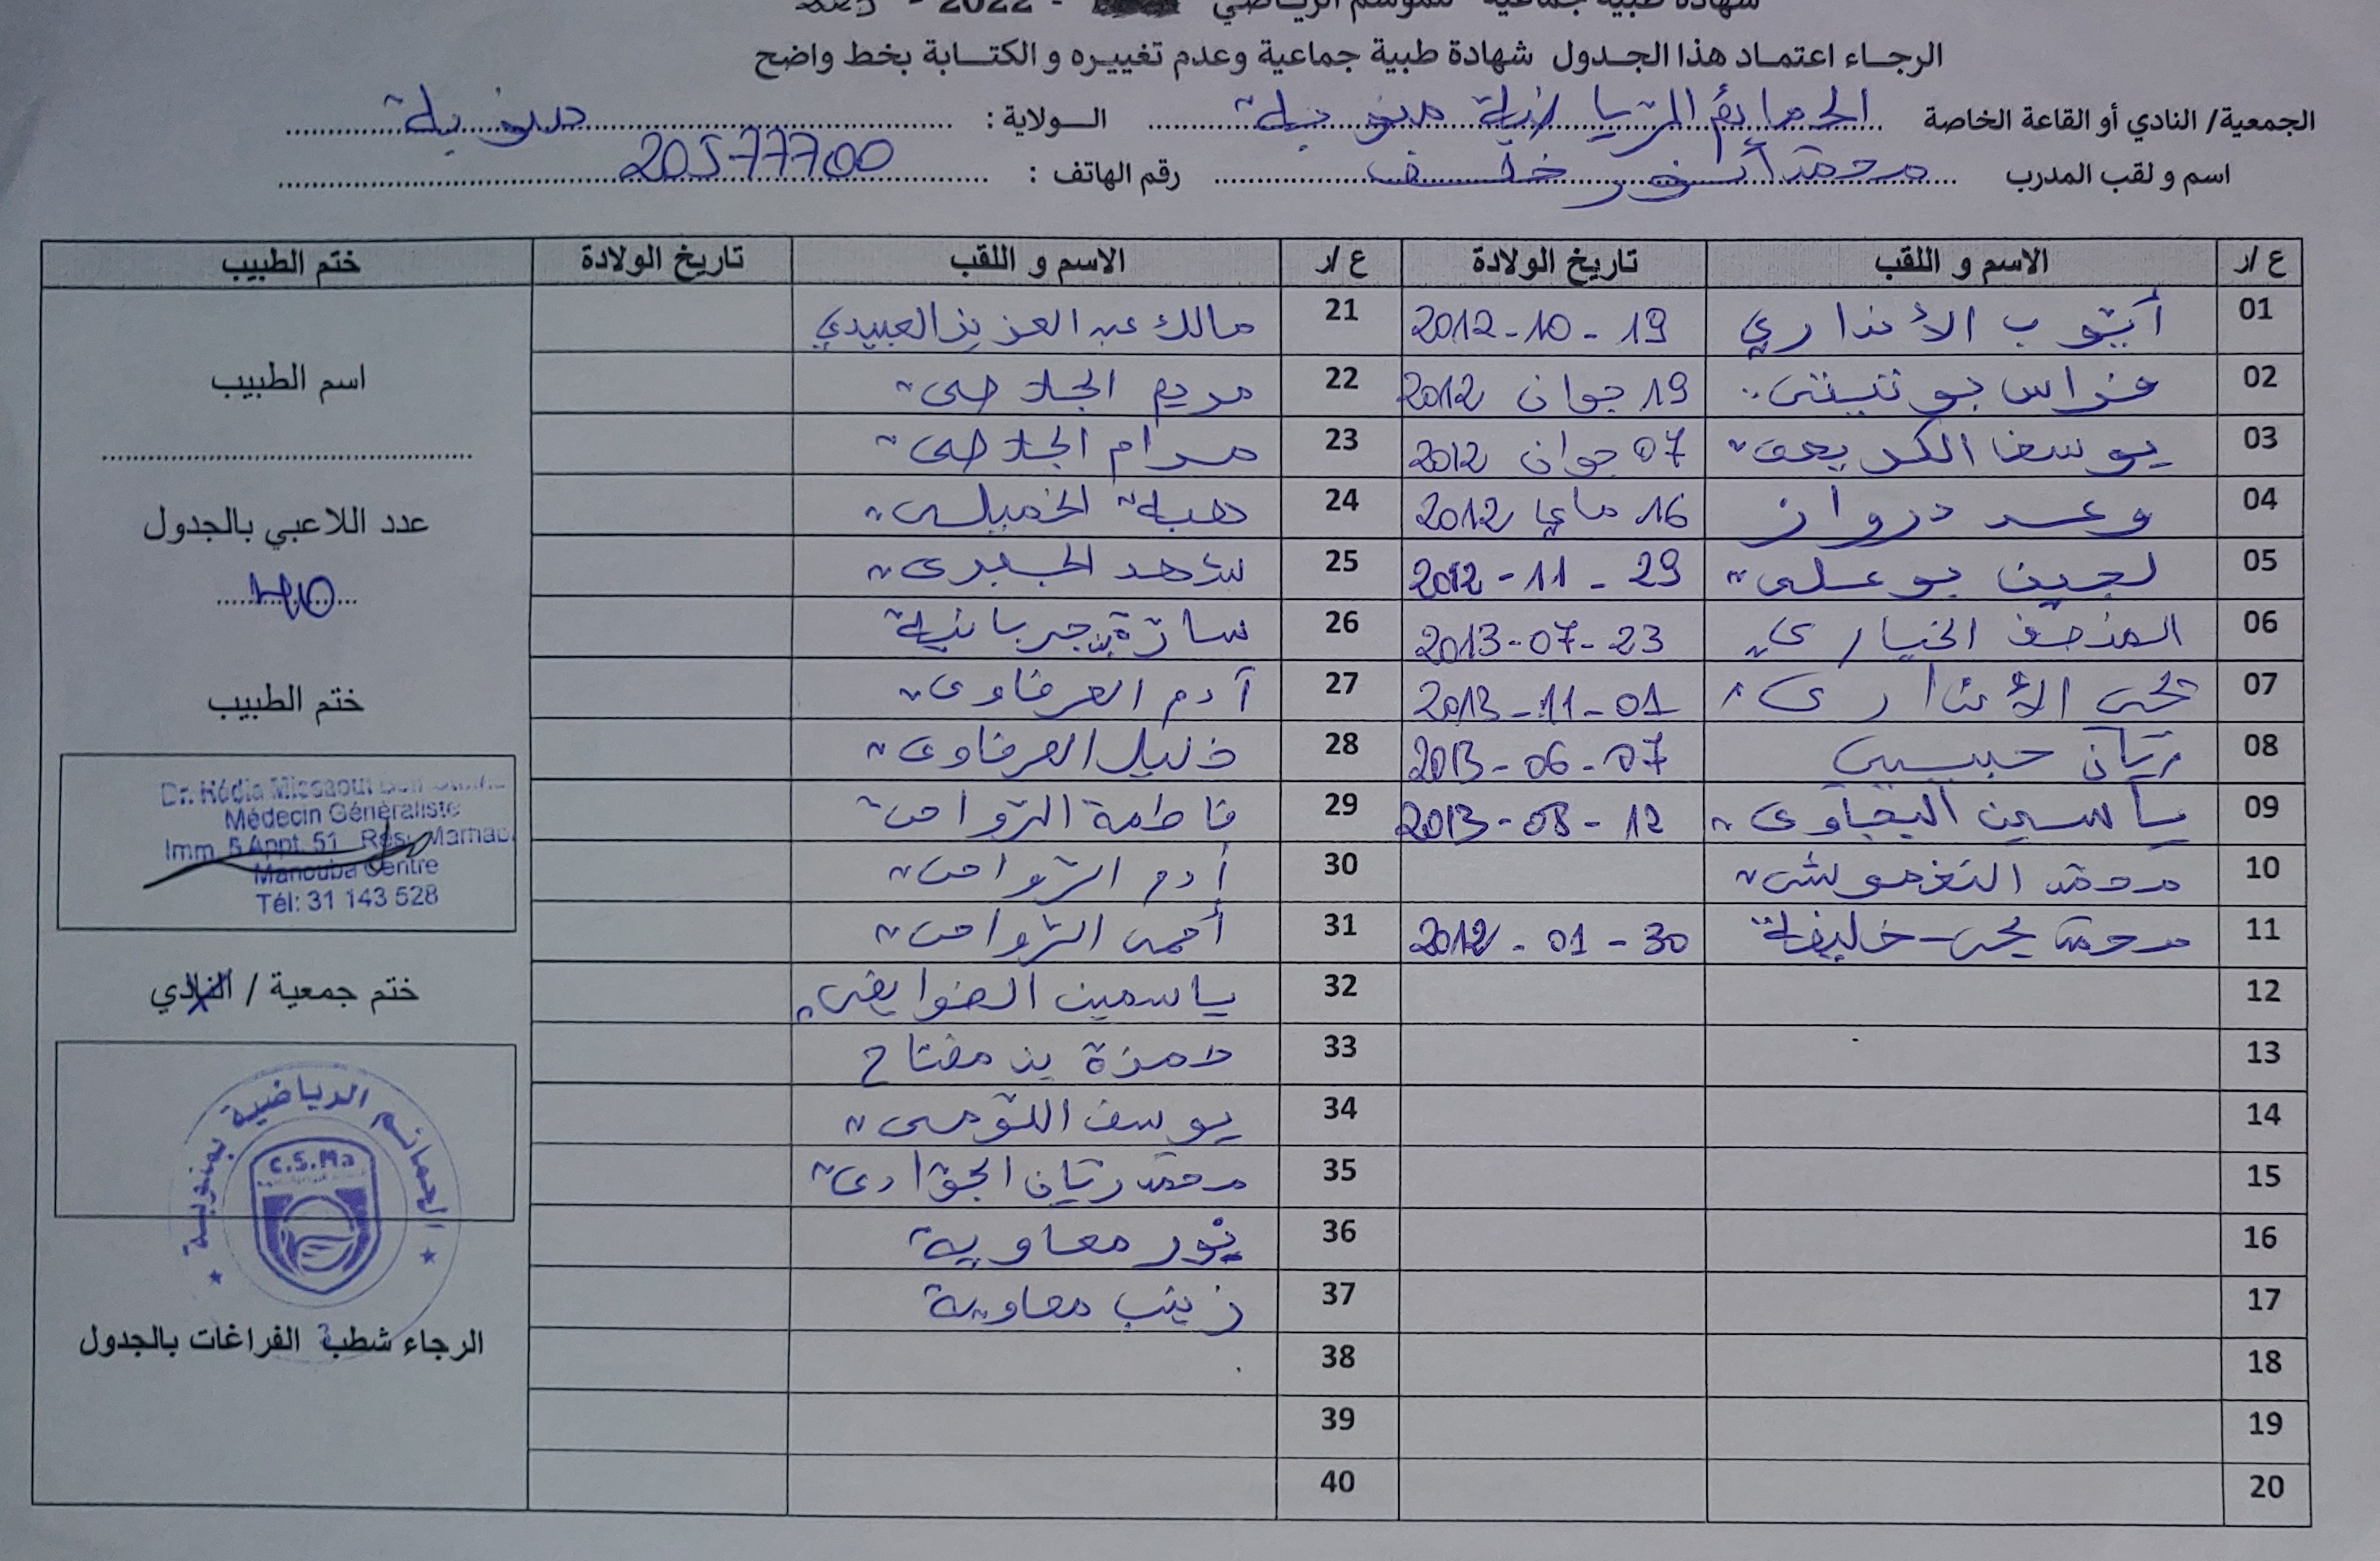 شهادة طبية جماعية للموسم الرياضي - 2022 - 2023
الرجاء اعتماد هذا الجدول شهادة طبية جماعية وعدم تغييره و الكتابة بخط واضح
الجمعية/ النادي أو القاعة الخاصة الحمائم الرياضية منوبة الولاية : منوبة
اسم و لقب المدرب محمد أنور خلف رقم الهاتف : 20577700
ع /ر الاسم و اللقب تاريخ الولادة ع /ر الاسم و اللقب تاريخ الولادة ختم الطبيب
01 أيوب الأنداري 19 - 10 - 2012 21 مالك عبد العزيز العبيدي
02 فراس بوتيتي 19 جوان 2012 22 مريم الجلاصي
03 يوسف 07 جوان 2012 23 مرام الجلاصي
04 وعد درواز 16 ماي 2012 24 هبة الخميلي
05 لجين بوعلي 29 - 11 - 2012 25 شهد الجبري
06 المنصف الخياري 23 - 07 - 2013 26 سارة جربانية
07 يحي الأنداري 01 - 11 - 2013 27 آدم العرفاوي
08 ريان حبيبي 07 - 06 - 2013 28 خليل العرفاوي
09 ياسمين اليحياوي 12 - 08 - 2013 29 فاطمة
10 محمد 30 آدم
11 محمد يحي خليفة 30 - 01 - 2012 31 أحمد
12 32 ياسمين
13 33 حمزة بن مفتاح
14 34 يوسف
15 35 محمد ريان الجوادي
16 36 نور معاوية
17 37 زينب معاوية
18 38
19 39
20 40
اسم الطبيب
عدد اللاعبي بالجدول
ختم الطبيب
Médecin Généraliste
Imm. 5 Appt. 51
Manouba Centre
Tél: 31 143 528
ختم جمعية / النادي
الحمائم الرياضية بمنوبة
C.S.Ma
الرجاء شطب الفراغات بالجدول